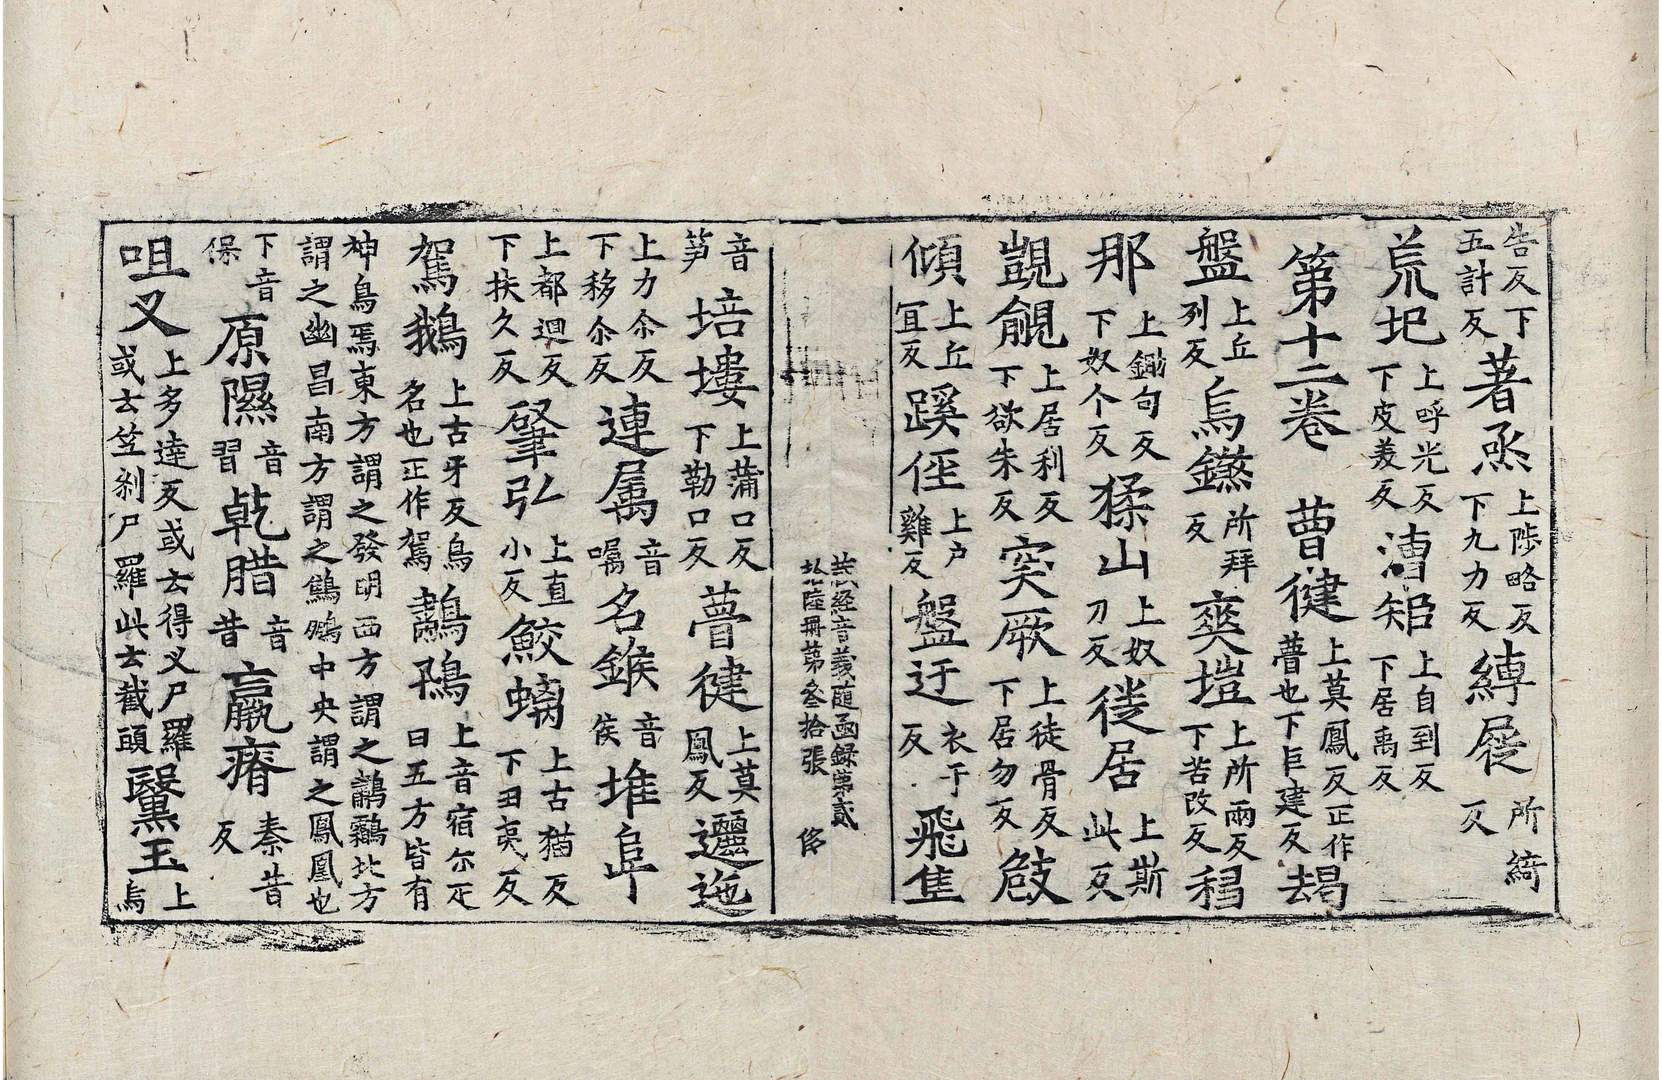 告反下五計反著烝上陟略反下九力反縳屣所綺反
荒圯上呼光反下皮美反漕矩上自到反下居禹反
第十二卷 瞢徤上莫鳳反正作懜也下巨建反朅
盤上丘列反烏鎩所拜反爽塏上所兩反下苦改反秵
那上鋤句反下奴个反猱山上奴刀反徙居上斯此反
覬覦上居利反下欲朱反突厥上徒骨反下居勿反攲
傾上丘宜反蹊徑上户雞反盤迂衣于反飛隼
藏經音義随函録第貳
拾陸冊第叁拾張 俢
音笋培塿上蒲口反下勒口反瞢徤上莫鳳反邐迤
上力尒反下移尒反連属音嘱名鍭音侯堆阜
上都迴反下扶久反肈弘上直小反鮫螭上古猶反下丑夷反
鴐鵝上古牙反鳥名也正作鴐鷫鳿上音宿尒疋曰五方皆有
神鳥焉東方謂之發明西方謂之鷫鷞北方謂之幽昌南方謂之鷦鵬中央謂之鳳凰也
下音保原隰音習乾腊音昔羸瘠秦昔反
呾叉上多達反或云得叉尸羅或云竺剎尸羅此云截頭黳玉上烏